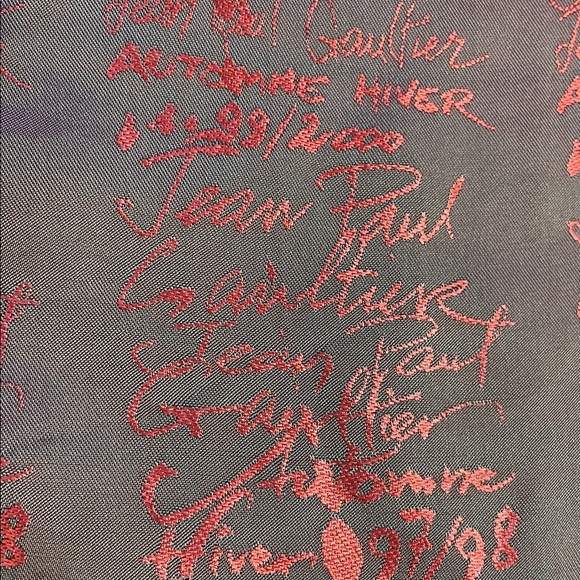 Jean Paul Gaultier
AUTOMNE HIVER
99/2000
Jean Paul
Gaultier
Jean Paul
Gaultier
Automne
Hiver 97/98